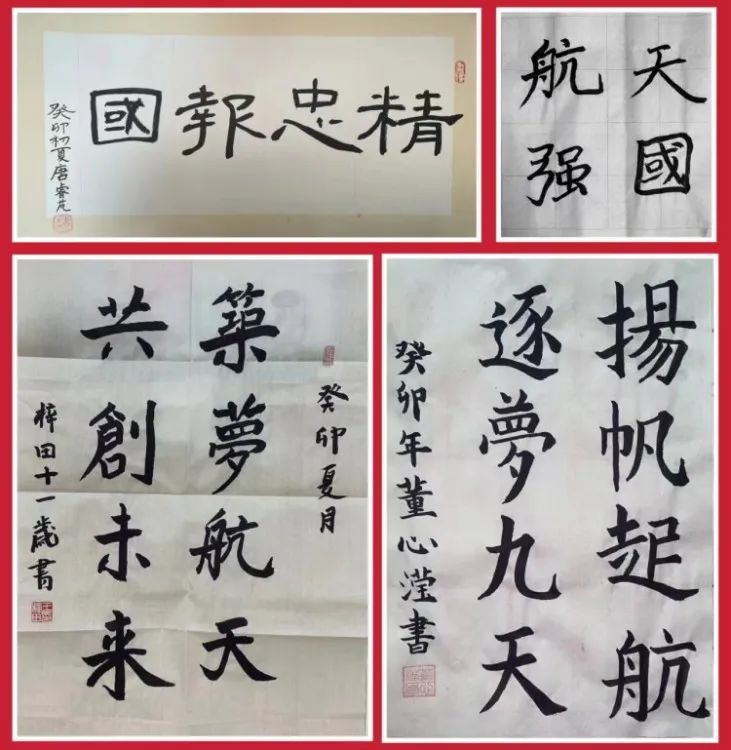 精忠報國
癸卯初夏唐睿芃
航天
强國
癸卯夏月
築夢航天
共創未来
梓田十一歲書
揚帆起航
逐夢九天
癸卯年董心滢書